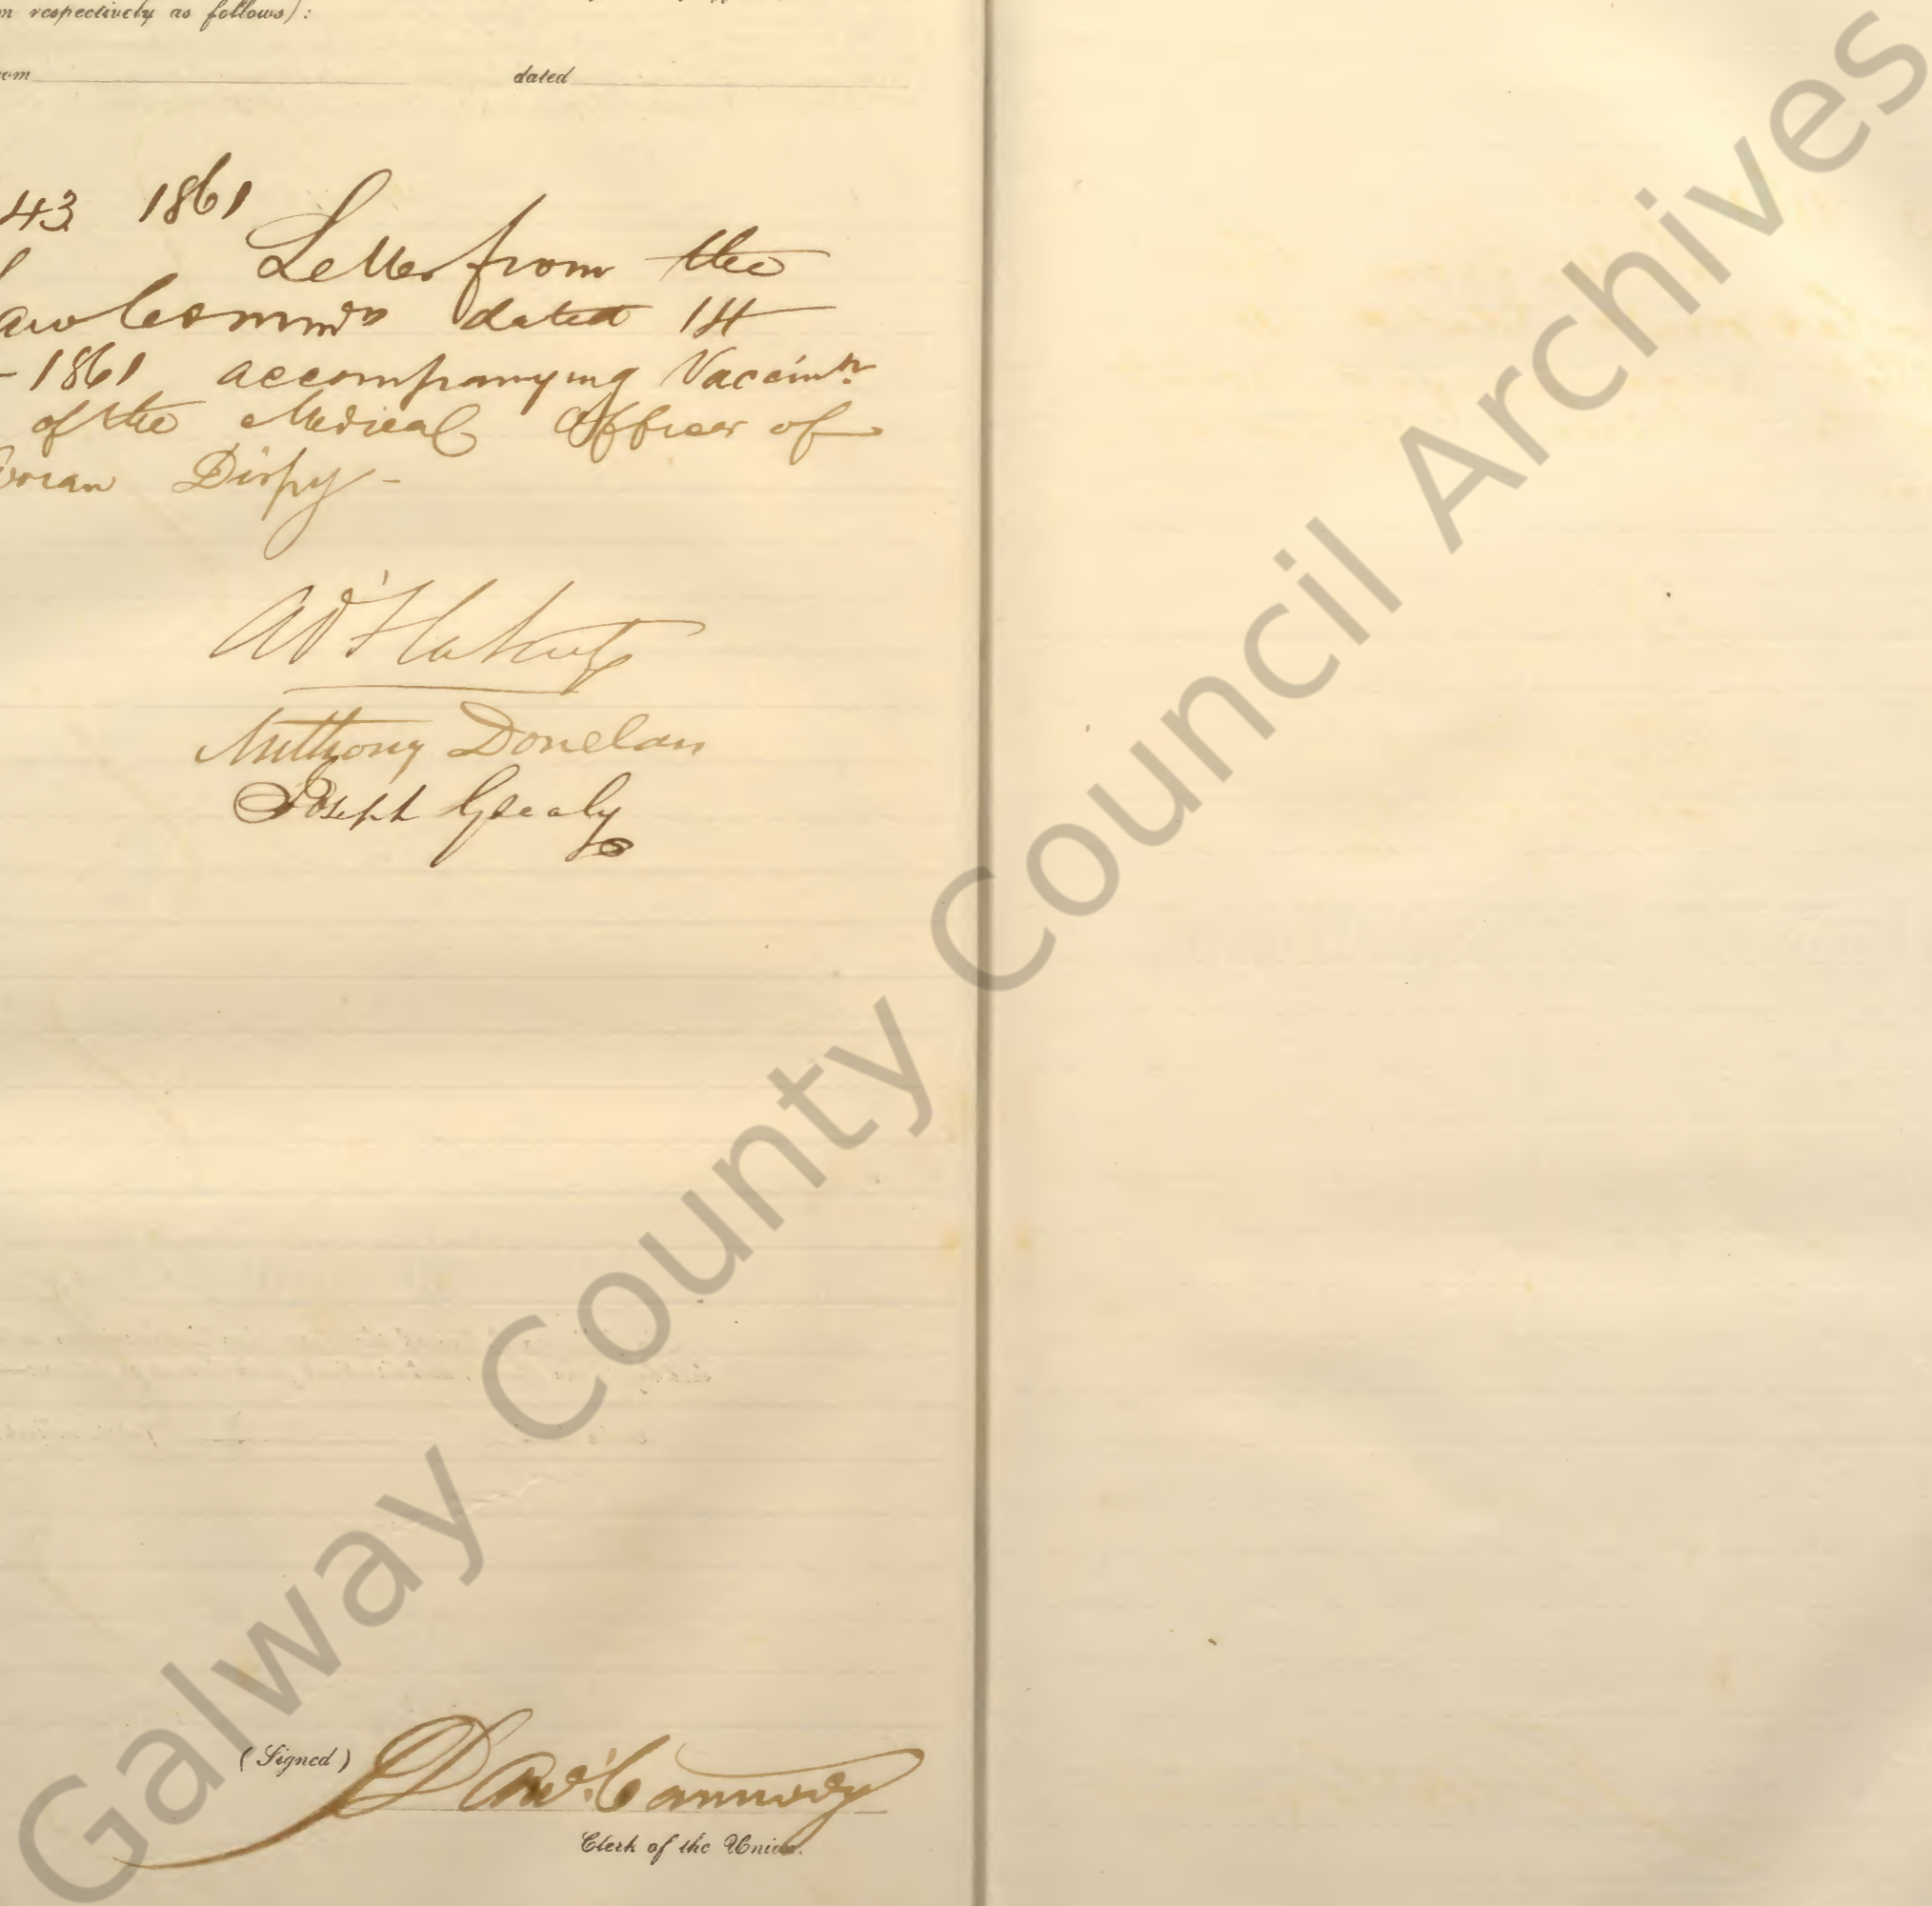 n respectively as follows):
om dated
43 1861
Letter from the
aw Commrs dated 14
- 1861 accompanying Vaccinn
of the Medical Officer of
oran Dispy -
A O'Flaherty
Anthony Donelan
Joseph Gealy
(Signed)
Clerk of the Union.
Galway County Council Archives